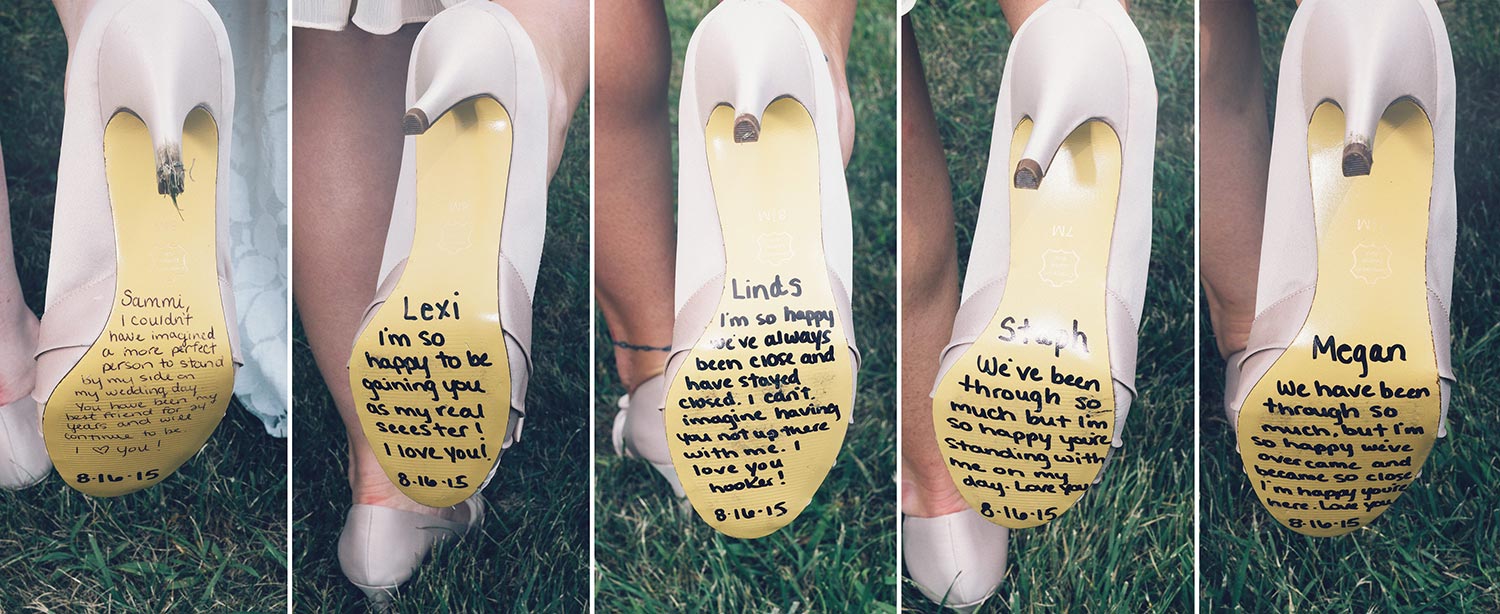 Sammi,
I couldn't
have imagined
a more perfect
person to stand
by my side on
my wedding day.
You have been my
best friend for 24
years and will
continue to be.
I ♡ you!
8·16·15
Lexi
I'm so
happy to be
gaining you
as my real
seeester!
I love you!
8·16·15
Linds
I'm so happy
we've always
been close and
have stayed
closed. I can't
imagine having
you not up there
with me. I
love you
hooker!
8·16·15
7M
Steph
We've been
through so
much but I'm
so happy you're
standing with
me on my
day. Love you
8·16·15
Megan
We have been
through so
much, but I'm
so happy we've
overcame and
became so close
I'm happy you're
here. Love you
8·16·15